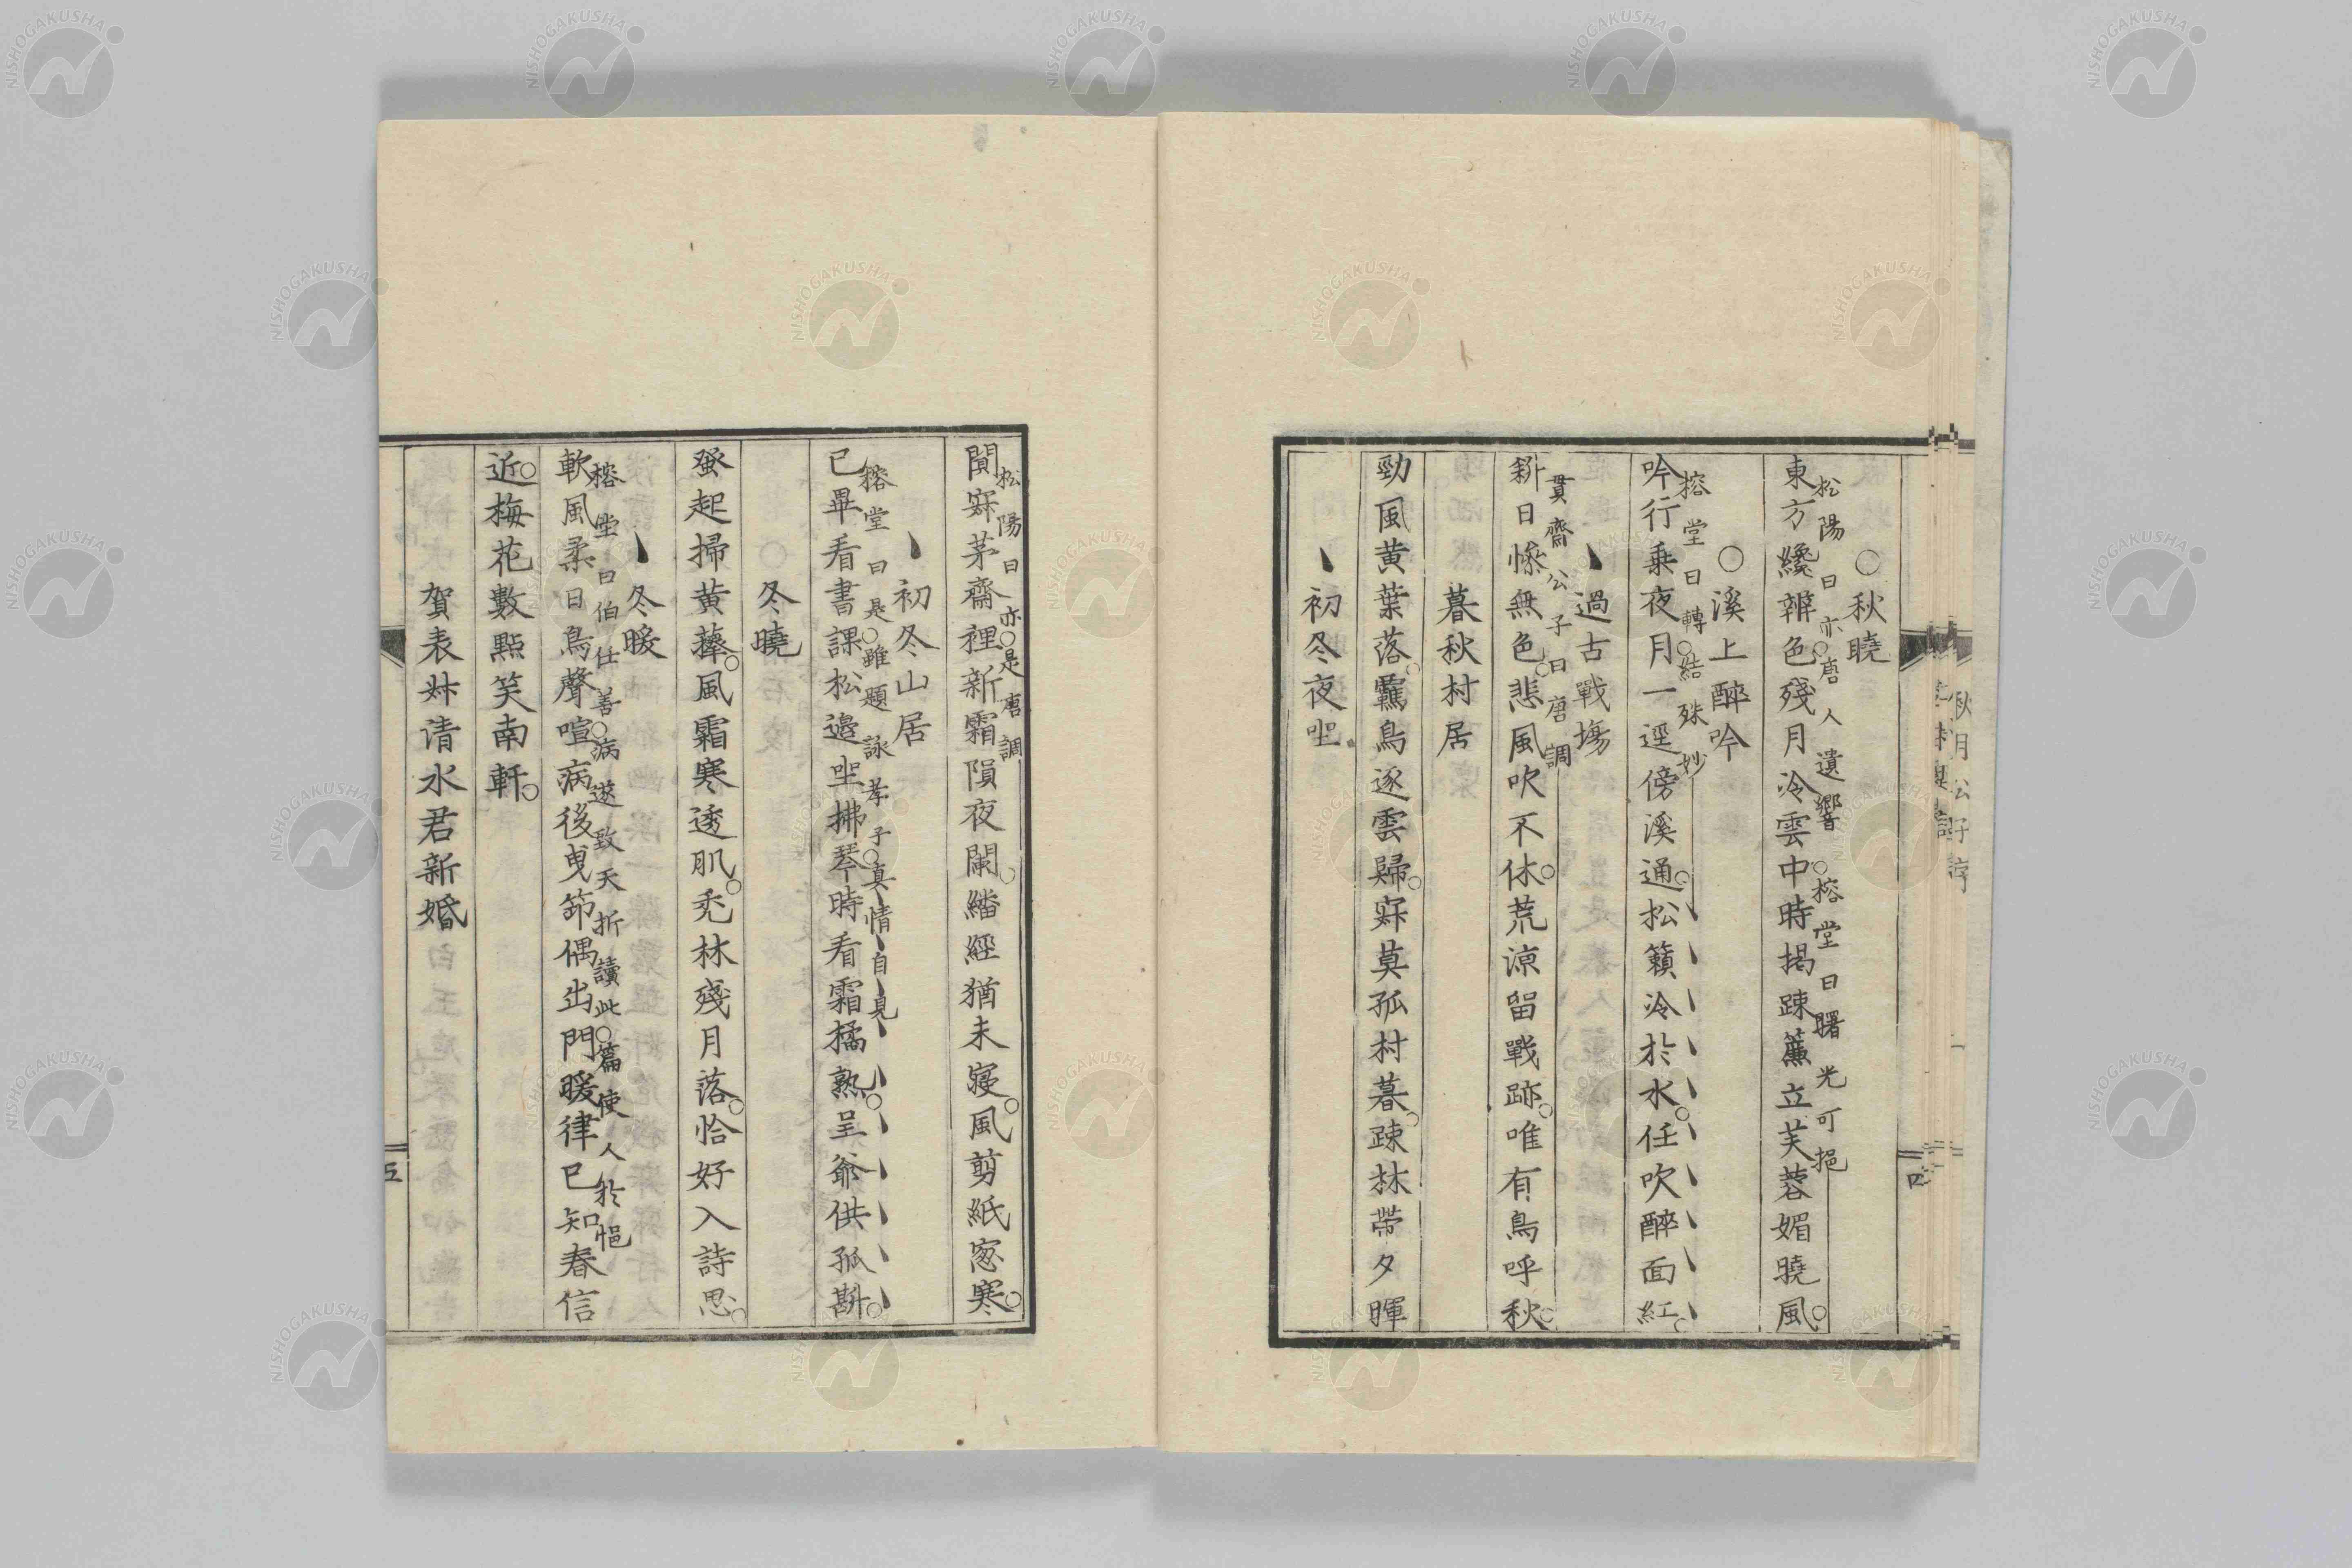 ○秋曉
松陽曰亦唐人遺響○榕堂曰曙光可挹
東方纔辨色殘月冷雲中時揭踈簾立芙蓉媚曉風
○溪上醉吟
榕堂曰轉結殊妙
吟行乗夜月一逕傍溪通松籟冷於水任吹醉面紅
過古戰塲
貫齋公子曰唐調
斜日慘無色悲風吹不休荒凉留戰跡唯有鳥呼秋
暮秋村居
勁風黄葉落羈鳥逐雲歸寂莫孤村暮踈林帶夕暉
初冬夜坐
四
松陽曰亦是唐調
闃寂茅齋裡新霜隕夜闌繙經猶未寝風剪紙窓寒
初冬山居
榕堂曰是雖題詠孝子真情自見
已畢看書課松邉坐拂琴時看霜橘熟呈爺供孤斟
冬曉
蚤起掃黄蘀風霜寒透肌禿林殘月落恰好入詩思
冬暖
榕堂曰伯仕善病遂致夭折讀此篇使人於悒
軟風柔日鳥聲喧病後曳筇偶出門暖律已知春信
近梅花數點笑南軒
賀表姊清水君新婚
五